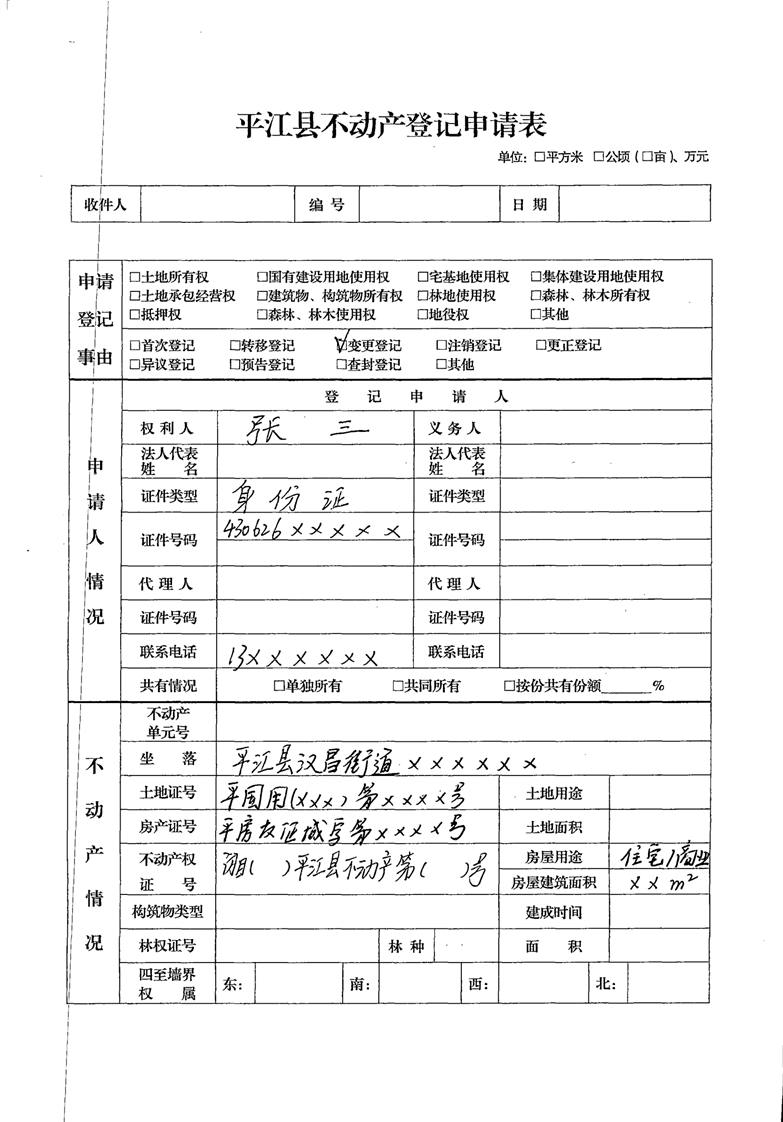 平江县不动产登记申请表
单位: □平方米 □公顷 (□亩)、万元
收件人 编号 日期
申请登记事由
□土地所有权 □国有建设用地使用权 □宅基地使用权 □集体建设用地使用权
□土地承包经营权 □建筑物、构筑物所有权 □林地使用权 □森林、林木所有权
□抵押权 □森林、林木使用权 □地役权 □其他
□首次登记 □转移登记 ☑变更登记 □注销登记 □更正登记
□异议登记 □预告登记 □查封登记 □其他
申请人情况
登记申请人
权利人 张三 义务人
法人代表姓名 法人代表姓名
证件类型 身份证 证件类型
证件号码 430626××××× 证件号码
代理人 代理人
证件号码 证件号码
联系电话 13×××××× 联系电话
共有情况 □单独所有 □共同所有 □按份共有份额______%
不动产情况
不动产单元号
坐落 平江县汉昌街道××××××
土地证号 平国用(×××)第××××号 土地用途
房产证号 平房权证城字第××××号 土地面积
不动产权证号 湘( )平江县不动产第( )号 房屋用途 住宅/商业
房屋建筑面积 ××m²
构筑物类型 建成时间
林权证号 林种 面积
四至墙界权属 东: 南: 西: 北: